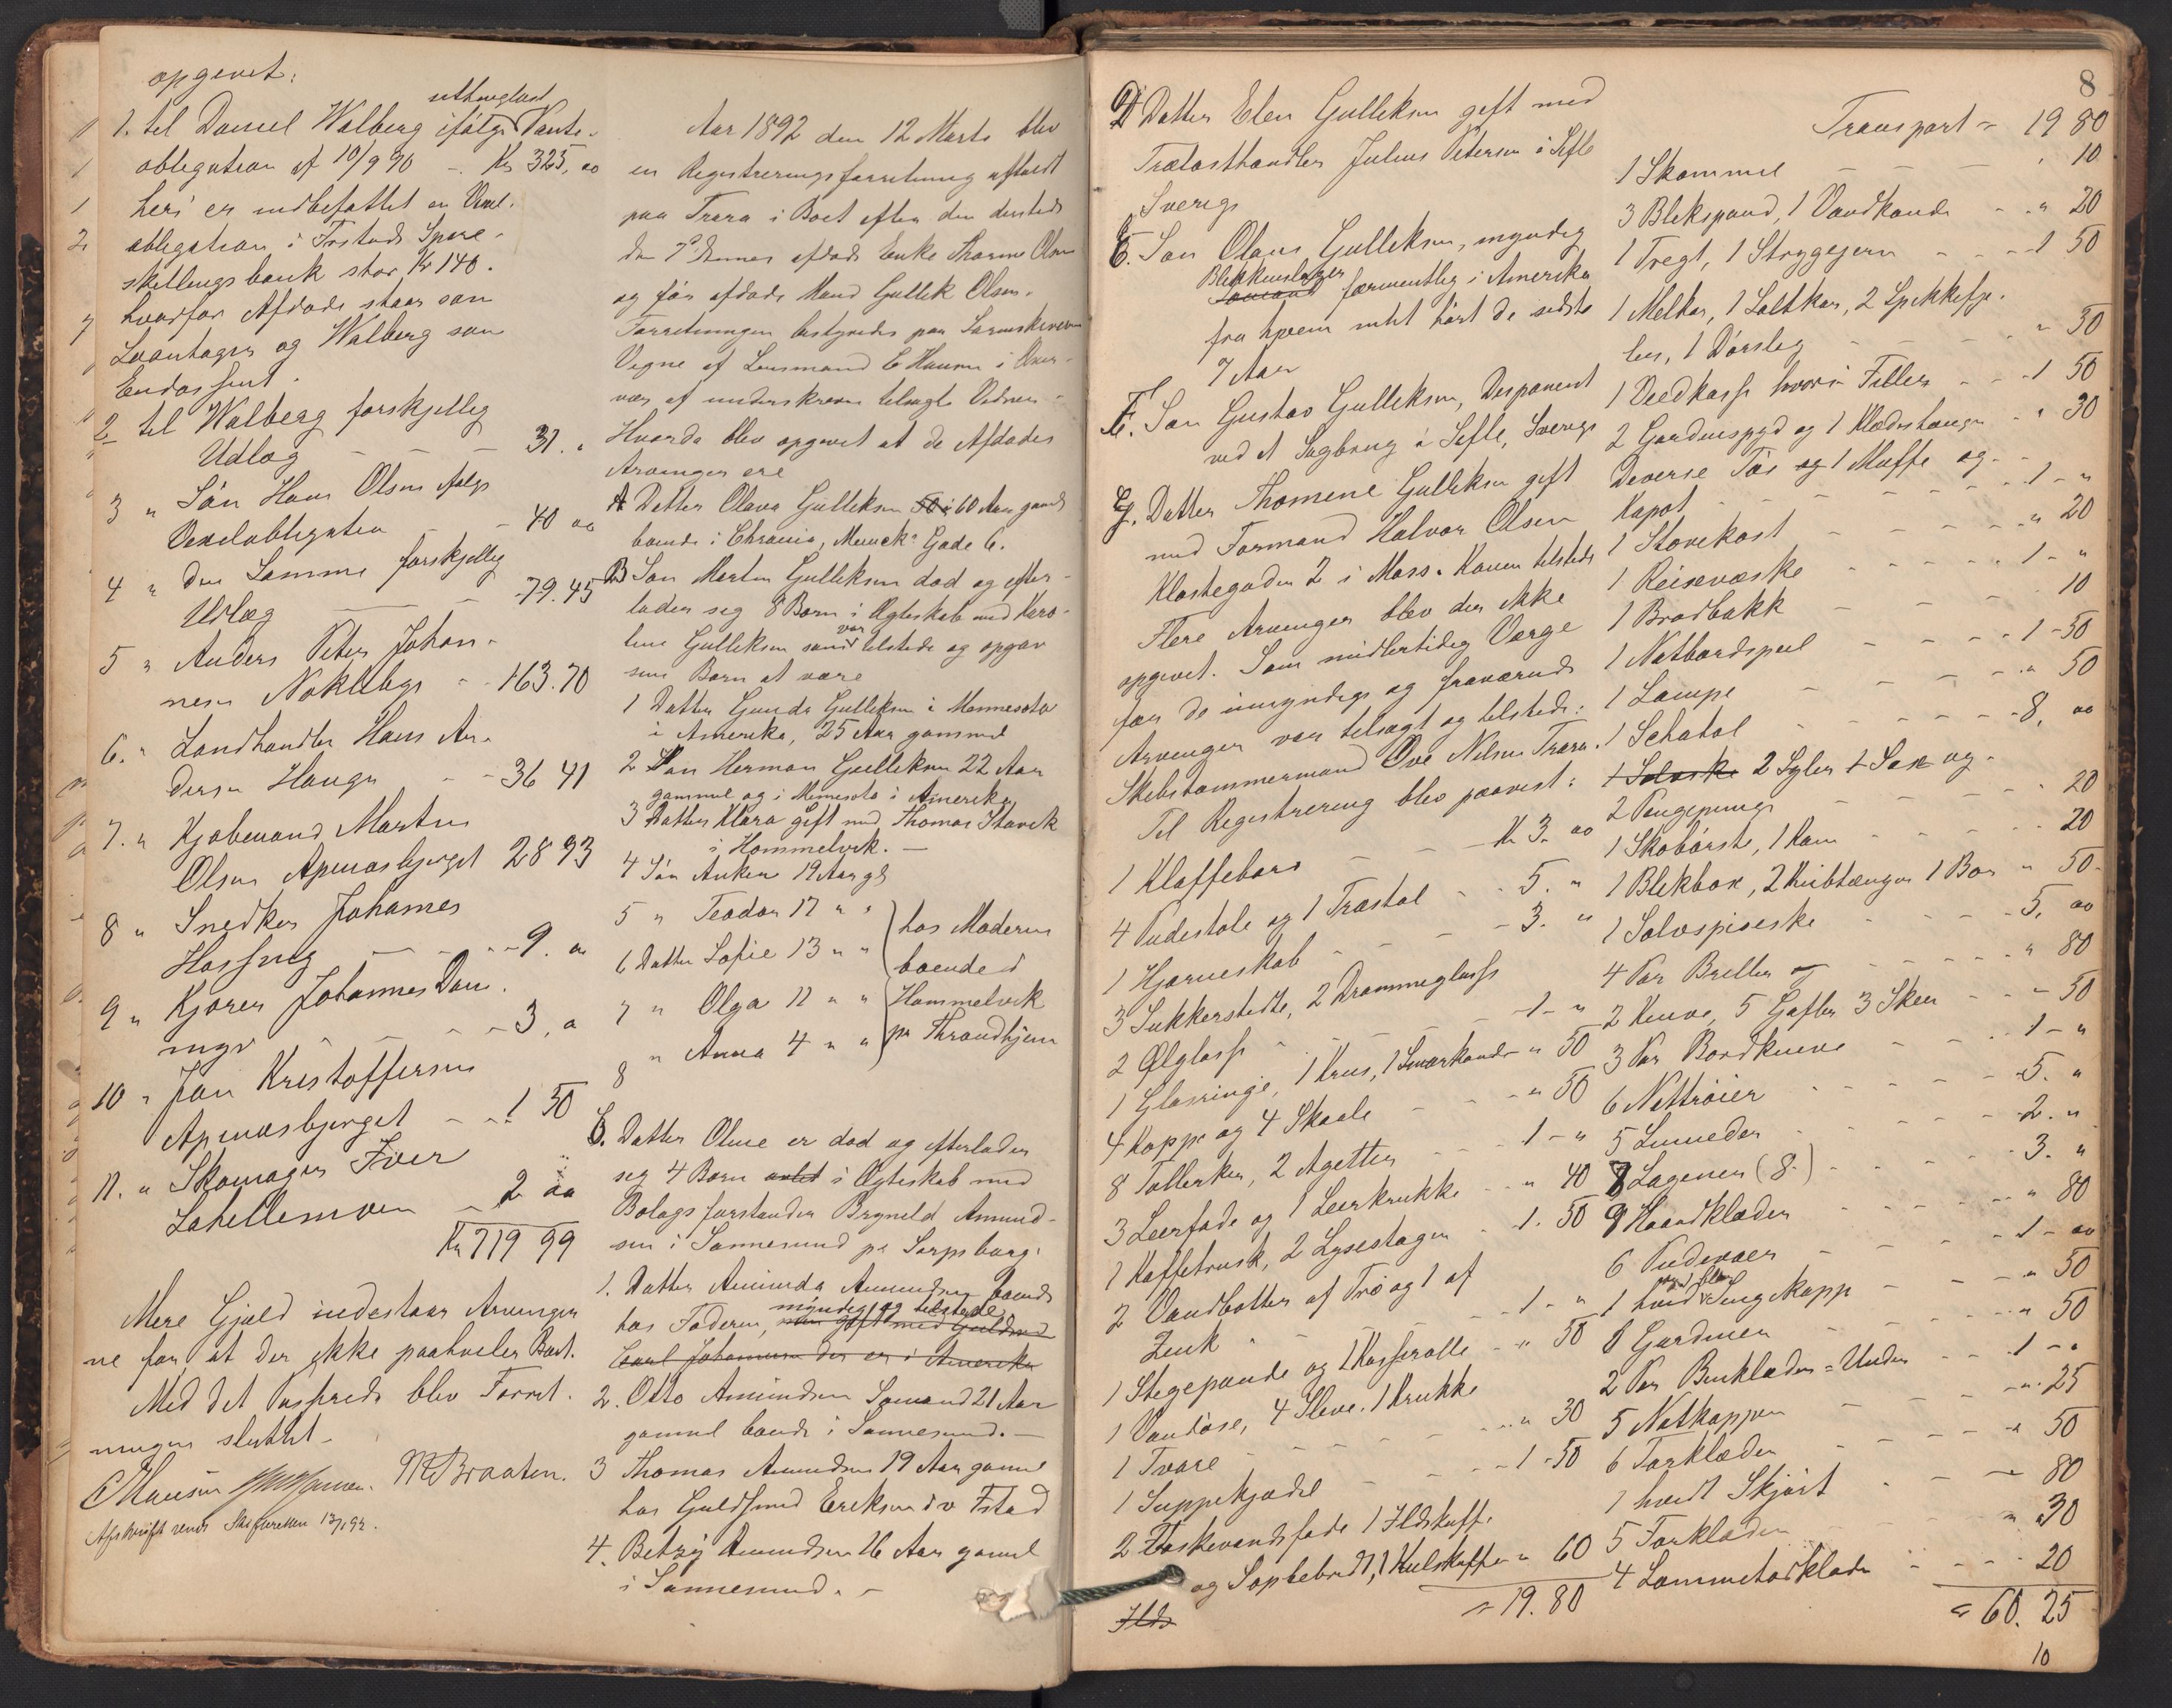 opgevet:
1. til Daniel Walberg ifølge uthinglæst Pante-
obligation af 10/9 90 - Kr 325, 00
heri er indbefattet en Vexel-
obligation i Fostads Spare-
skillingsbank stor Kr 140.
hvorfor Afdøde staar som
Laantager og Walberg som
Endossent.
2 til Walberg forskjellig
Udlæg - - - 31. "
3 " Søn Hans Olsen ifølge
Vexelobligation - - 40 00
4 " den Samme forskjellig
Udlæg - - 79.45
5 " Anders Peter Johan-
nesen Nøkleby - - 163.70
6. " Landhandler Hans An-
dersen Hauger - - 36 41
7. " Kjøbmand Martin
Olsen Apenæsbjerget 28 93
8 " Snedker Johannes
Hassing - - - 9. 00
9 " Kjører Johannes Dan
inger - - - 3, 0
10 " Jan Kristoffersen
Apenæsbjerget - - 1 50
11. " Skomager Iver
Labellemoen - 2 00
Kr 719 99
Mere Gjæld indestaar Arvinger
ne for, at der ikke paahviler Boet.
Med det Passerede blev Forret-
ningen sluttet.
C Hansen M Braaten.
Afskrift sendt Skifteretten 13/3 92.
Aar 1892 den 12 Marts blev
en Registreringsforretning afholdt
paa Trara i Boet efter den dersteds
den 7de dennes afdøde Enke Maren Olsen
og før afdøde Mand Gullik Olsen.
Forretningen bestyredes paa Sorenskriverens
Vegne af Lensmand C Hansen i Over-
vær af underskrevne tilsagte Vidner.
Hvorda blev opgivet at de Afdødes
Arvinger ere
A Datter Olava Gulliksen 60 Aar gammel
boende i Christiania, Munck Gade 6.
B Søn Martin Gulliksen død og efter-
lader sig 8 Børn i Ægteskab med Karo-
line Gulliksen som var tilstede og opgav
sine Børn at være
1 Datter Gunda Gulliksen i Mennesota
i Amerika, 25 Aar gammel
2 Søn Herman Gulliksen 22 Aar
gammel og i Minnesota i Amerika
3 Datter Klara gift med Thomas Stavik
i Hommelvik. -
4 Søn Anken 19 Aar gl
5 " Teodor 17 " "
6 Datter Sofie 13 " "
7 " Olga 11 " "
8 " Anna 4 " "
hos Moderen
boende i
Hommelvik
pr Throndhjem
C. Datter Oline er død og efterlader
sig 4 Børn avlet i Ægteskab med
Bolags forstander Brynild Amund-
sen i Sannesund pr Sarpsborg.
1. Datter Amunda Amundsen boende
hos Faderen, myndig og tilstede
Carl Johannesen der er i Amerika
2. Otto Amundsen Sømand 21 Aar
gammel boende i Sannesund. -
3 Thomas Amundsen 19 Aar gammel
hos Guldsmed Eriksen i Fstad
4. Betzy Amundsen 16 Aar gammel
i Sannesund. -
8
D Datter Elen Gulliksen gift med
Trælasthandler Julius Petersen i Sefle
Sverige
E. Søn Olaus Gulliksen, myndig
Blikkenslager
Sømand formentlig i Amerika
fra hvem intet hørt de sidste
7 Aar
F. Søn Gustav Gulliksen, Disponent
ved et Sagbrug i Sefle, Sverige
G. Datter Thomine Gulliksen gift
med Formand Halvor Olsen
Klostegaden 2 i Moss. Konen tilstede
Flere Arvinger blev der ikke
opgivet. Som midlertidig Værge
for de umyndige og fraværende
Arvinger var tilsagt og tilstede:
Skibstømmermand Ove Nilsen Trara.
Til Registrering blev paavist:
1 Klaffebord - - Kr 3. 00
4 Pudestole og 1 Træstol - - 5. "
1 Hjørneskab - - - 3. "
3 Sukkerstedte, 2 Drammeglass
2 Ølglass - - - 1 - "
1 Glasringe, 1 Krus, 1 Smørkande - " 50
4 Kopper og 4 Skaale - - " 50
8 Tallerker, 2 Asjetter - - 1 - "
3 Leerfade og 1 Leerkrukke - - " 40
1 Kaffetrusk, 2 Lysestager - 1. 50
2 Vandbøtter af Træ og 1 af
Zink - - - 1 - "
1 Stegepande og 1 Kasserolle - " 50
1 Vandøse, 4 Sleve. 1 Krukke
1 Tvare - - - " 30
1 Suppekjedel - - - 1 - 50
2 Vaskevandsfade 1 Ildskuff.
og Sopbebredt, 1 Kulskuffe " 60
Ilds = 19. 80
Transport = 19 80
1 Skammel - - - " 10
3 Blekspand, 1 Vandkande - - " 20
1 Tregt, 1 Strygejern - - - 1 50
1 Melkar, 1 Saltkar, 2 Spikkefje-
ler, 1 Dørslag - - - " 30
1 Vedkasse hvori Filler - - - 1 50
2 Gardinspyd og 1 Klædestænger - " 30
Diverse Tøi og 1 Muffe og
Kapot - - - 1 - "
1 Stovekost - - - " 20
1 Reisevæske - - - 1 - "
1 Brødbakk - - - 10
1 Natbordspeil - - - 1 - 50
1 Lampe - - - " 50
1 Schatol - - - 8. 00
2 Syler 1 Sax og
2 Pengepunge - - - " 20
1 Skobørste, 1 Kam - - - 20
1 Blekbox, 2 Knibtænger 1 Bor " 50
1 Sølvspiseske - - - 5. 00
4 Par Briller - - - " 80
2 Knive, 5 Gafler 3 Skeer - - - 50
3 Par Bordknive - - - 1 - "
6 Nattrøier - - - 5. "
5 Linneder - - - 2. "
8 Lagener (8) - - - 3. "
9 Haandklæder - - - " 80
6 Pudevaer - - - 1 - 00
1 hvid Sengekappe - - - " 50
8 Gardiner - - - " 50
2 Par Benklæder = Under - - 1 - "
5 Natkapper - - - " 25
6 Tørklæder - - - " 50
1 hvidt Skjørt - - - 80
5 Forklæder - - - " 30
4 Lommetørklæder - - - 20
= 60. 25
10